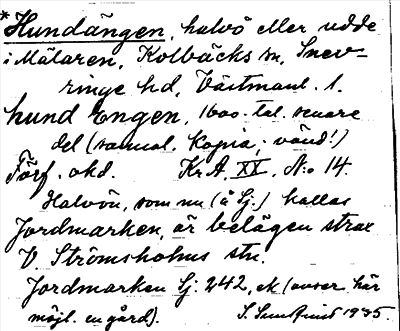 * Hundängen, halvö eller udde
i Mälaren, Kolbäcks sn, Snev-
ringe hd, Västmanl. l.
hund Engen, 1600-tal. senare
del (samml. Kopia; vänd!)
Förf. okd. Kr. A. XX, N:o 14.
Halvön, som nu (å Gj.) kallas
Jordmarken, är belägen strax
V. Strömsholms stn.
Jordmarken Gj. 242, ek (avser här
möjl. en gård). 1935.